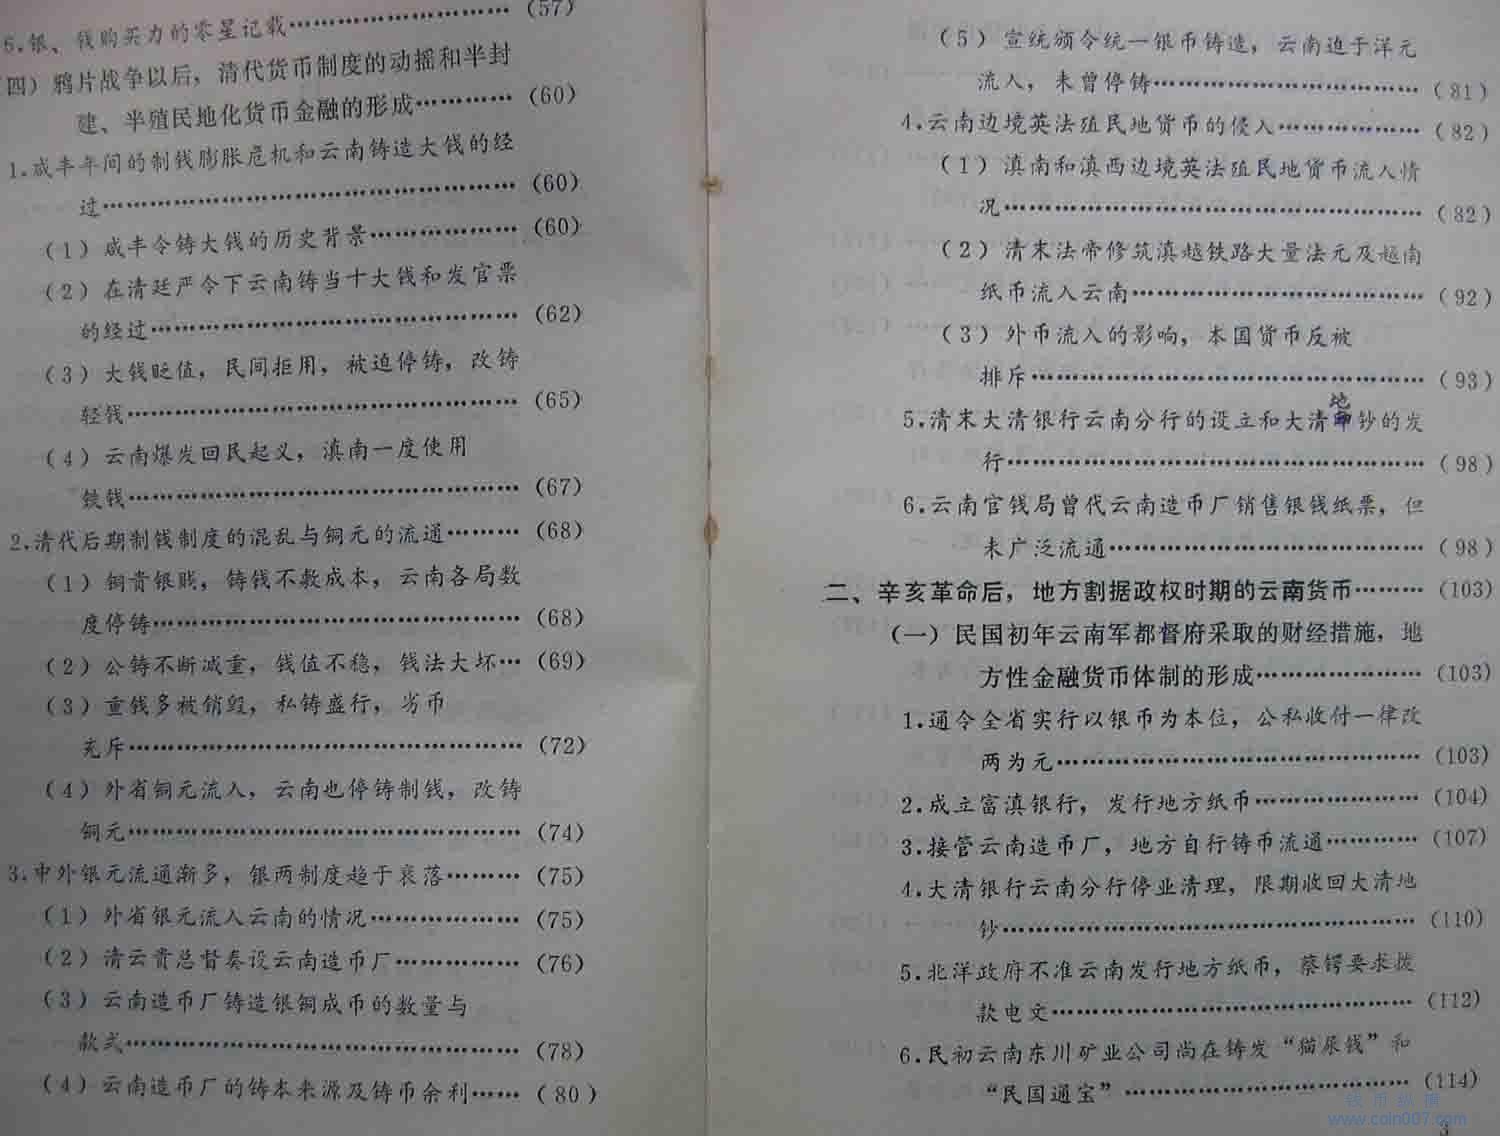 6.银、钱购买力的零星记载…………………… (57)
(四) 鸦片战争以后，清代货币制度的动摇和半封
建、半殖民地化货币金融的形成………… (60)
1.咸丰年间的制钱膨胀危机和云南铸造大钱的经
过…………………………………………… (60)
(1) 咸丰令铸大钱的历史背景……………… (60)
(2) 在清廷严令下云南铸当十大钱和发官票
的经过……………………………………… (62)
(3) 大钱贬值，民间拒用，被迫停铸，改铸
轻钱………………………………………… (65)
(4) 云南爆发回民起义，滇南一度使用
铁钱………………………………………… (67)
2.清代后期制钱制度的混乱与铜元的流通……… (68)
(1) 铜贵银贱，铸钱不敷成本，云南各局数
度停铸……………………………………… (68)
(2) 公铸不断减重，钱值不稳，钱法大坏… (69)
(3) 重钱多被销毁，私铸盛行，劣币
充斥………………………………………… (72)
(4) 外省铜元流入，云南也停铸制钱，改铸
铜元………………………………………… (74)
3.中外银元流通渐多，银两制度趋于衰落……… (75)
(1) 外省银元流入云南的情况……………… (75)
(2) 清云贵总督奏设云南造币厂…………… (76)
(3) 云南造币厂铸造银铜成币的数量与
款式………………………………………… (78)
(4) 云南造币厂的铸本来源及铸币余利…… (80)
(5) 宣统颁令统一银币铸造，云南迫于洋元
流入，未曾停铸…………………………… (81)
4.云南边境英法殖民地货币的侵入……………… (82)
(1) 滇南和滇西边境英法殖民地货币流入情
况…………………………………………… (82)
(2) 清末法帝修筑滇越铁路大量法元及越南
纸币流入云南……………………………… (92)
(3) 外币流入的影响，本国货币反被
排斥………………………………………… (93)
5.清末大清银行云南分行的设立和大清地钞的发
行…………………………………………… (98)
6.云南官钱局曾代云南造币厂销售银钱纸票，但
未广泛流通………………………………… (98)
二、辛亥革命后，地方割据政权时期的云南货币……… (103)
(一) 民国初年云南军都督府采取的财经措施，地
方性金融货币体制的形成………………… (103)
1.通令全省实行以银币为本位，公私收付一律改
两为元……………………………………… (103)
2.成立富滇银行，发行地方纸币………………… (104)
3.接管云南造币厂，地方自行铸币流通………… (107)
4.大清银行云南分行停业清理，限期收回大清地
钞…………………………………………… (110)
5.北洋政府不准云南发行地方纸币，蔡锷要求拨
款电文……………………………………… (112)
6.民初云南东川矿业公司尚在铸发“猫尿钱”和
“民国通宝”……………………………… (114)
3
钱币纵横
www.coin007.com